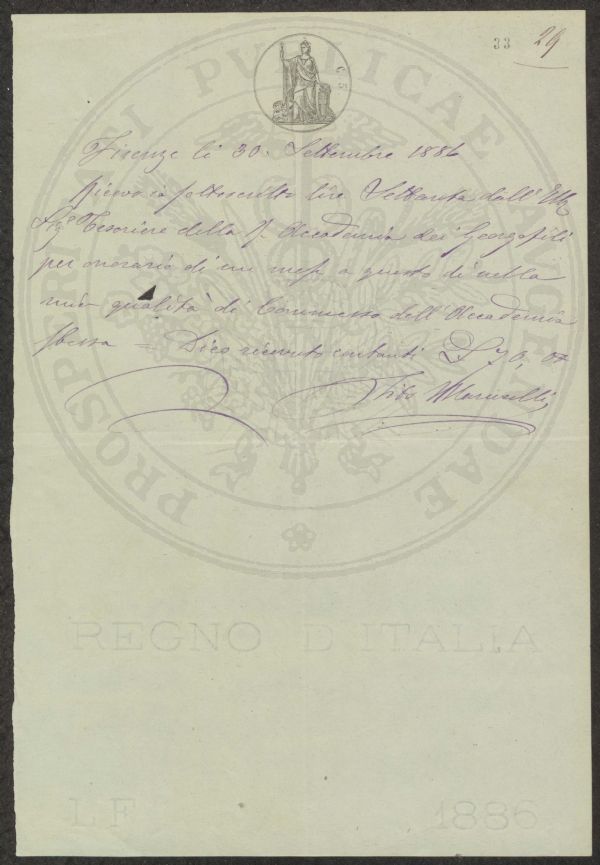 33 29
Firenze li 30. Settembre 1886
Ricevo io sottoscritto lire Settanta dall' Ill
Sigr Tesoriere della R. Accademia dei Georgofili
per onorario di un mese a questo dì nella
mia qualità di Commesso dell' Accademia
stessa = Dico ricevuto contanti L 70, 00
Tito Maruselli
PROSPERITATI PUBLICAE AUGENDAE
REGNO D'ITALIA
LF 1886